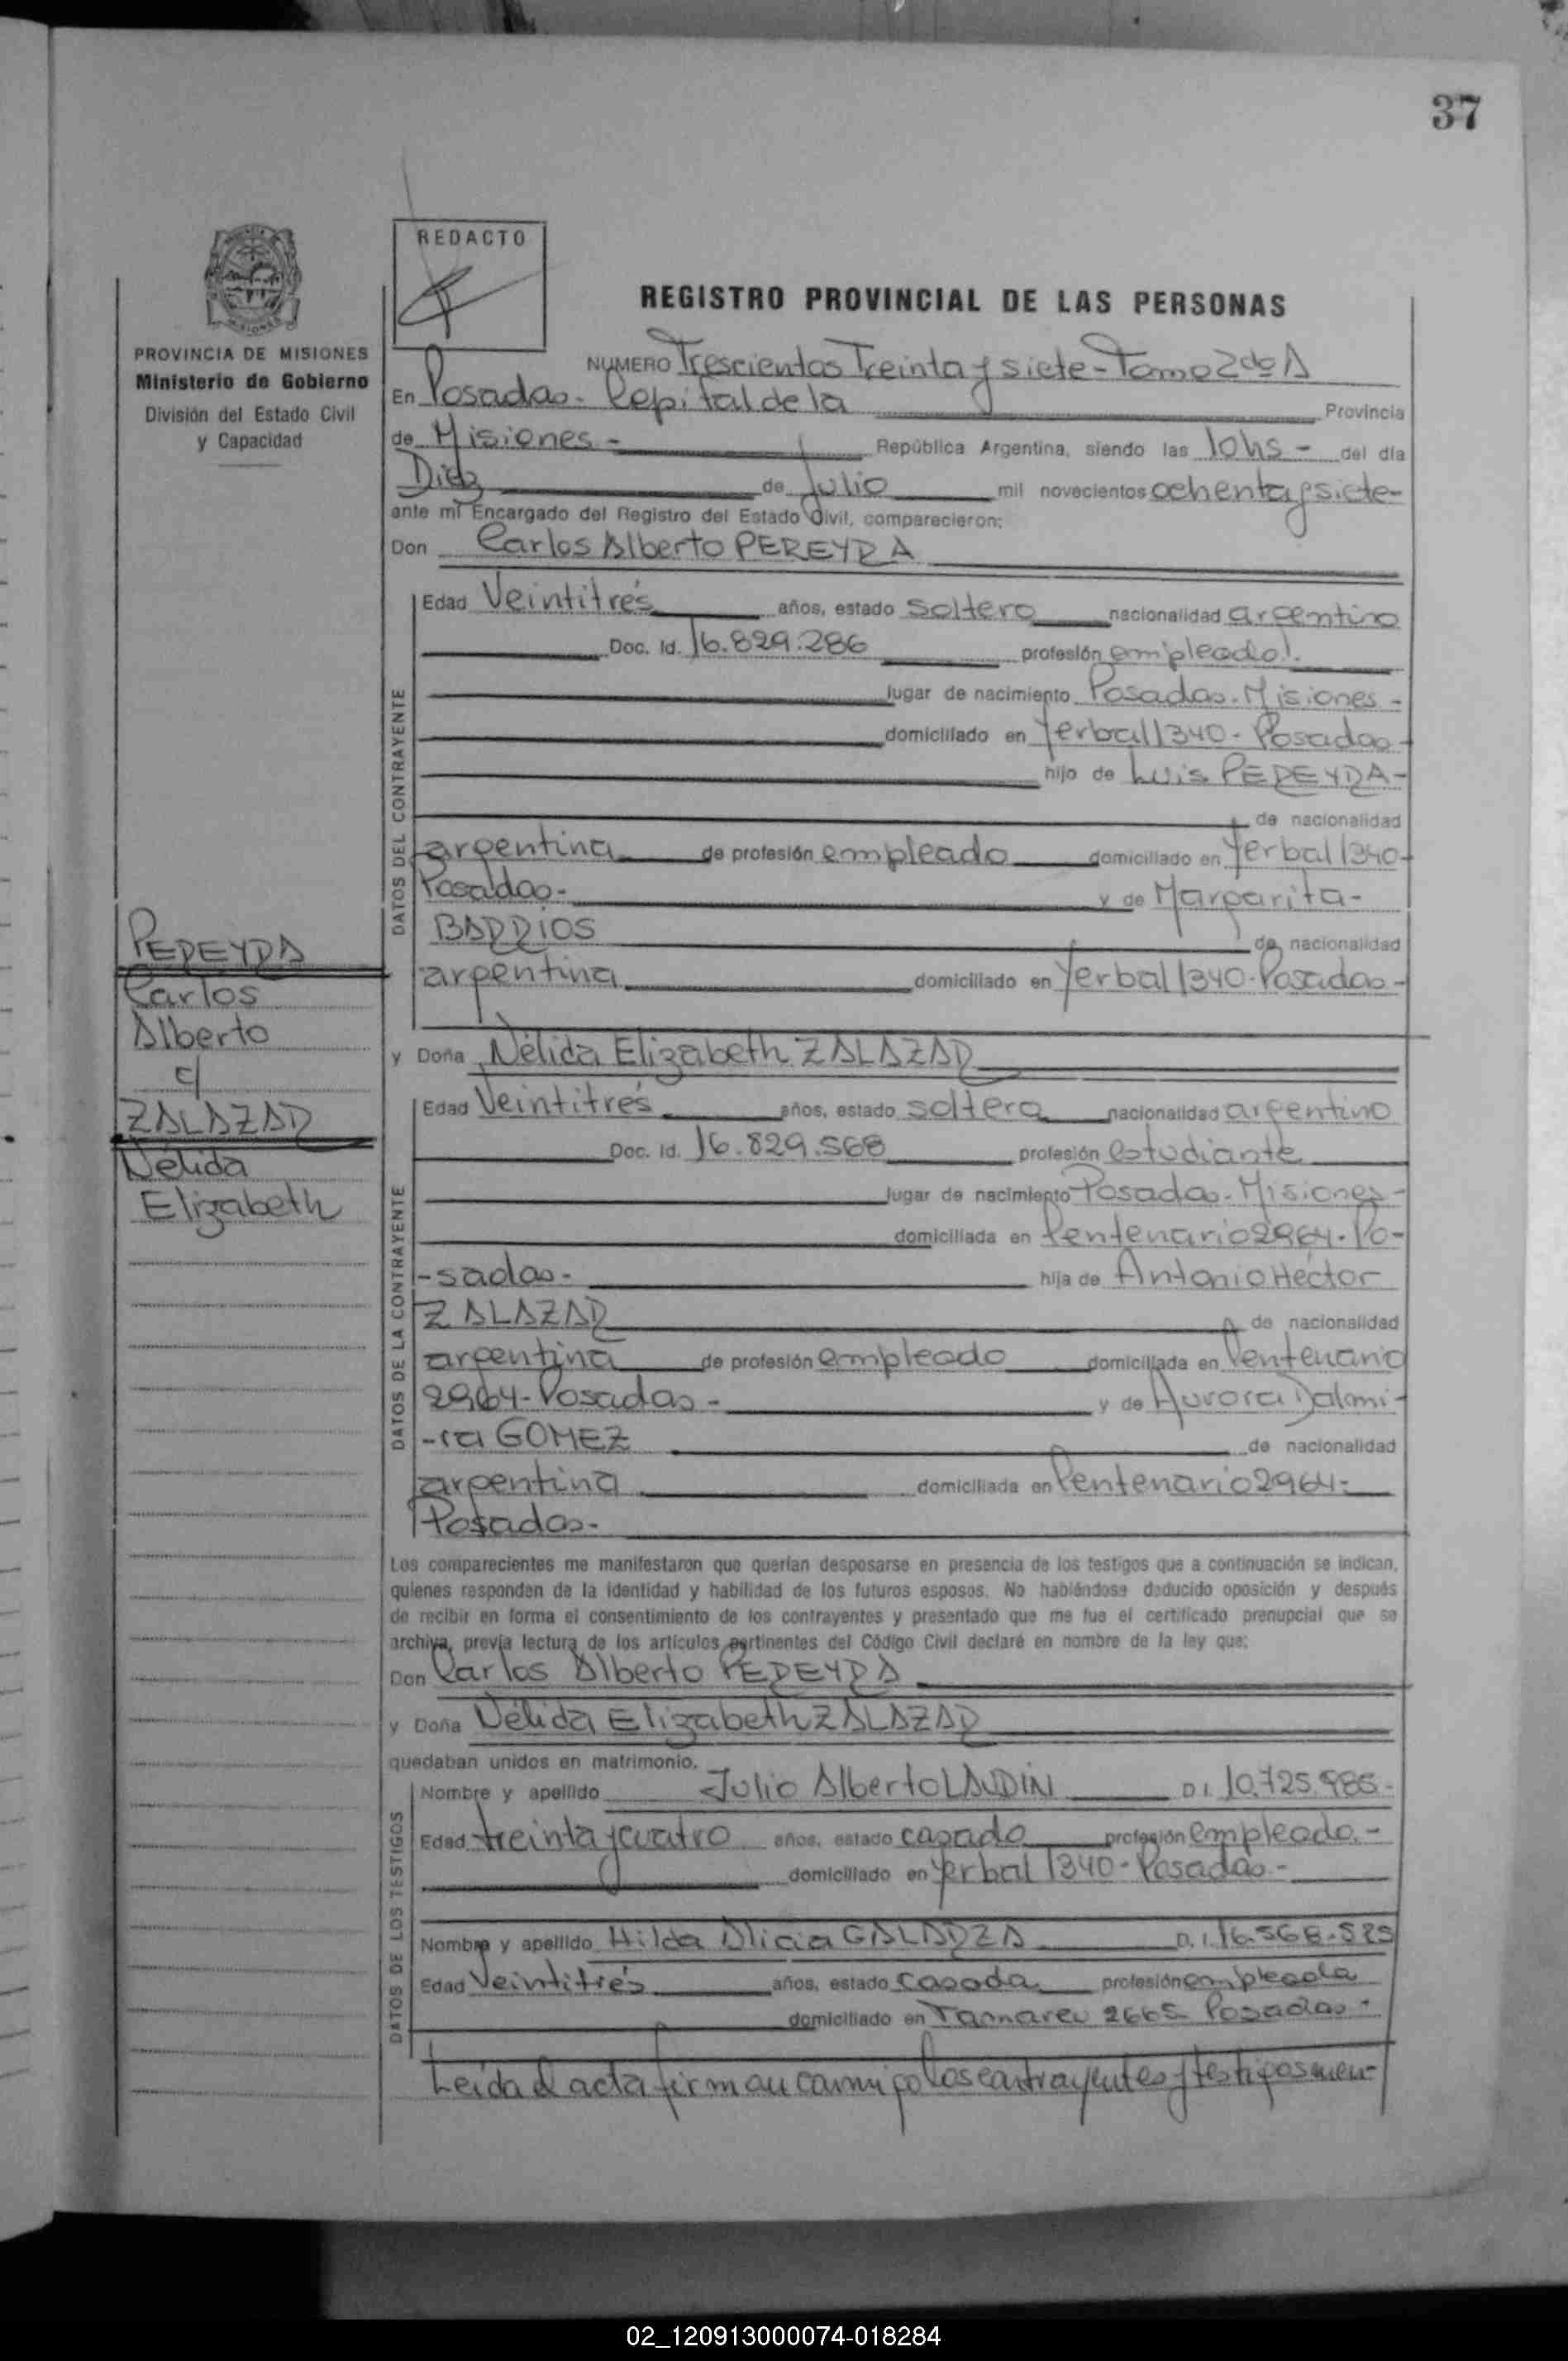 37
REDACTO
PROVINCIA DE MISIONES
Ministerio de Gobierno
División del Estado Civil
y Capacidad
REGISTRO PROVINCIAL DE LAS PERSONAS
NUMERO Trescientos Treinta y siete - Tomo 2do A
En Posadas - Capital de la Provincia
de Misiones - República Argentina, siendo las 10 hs - del día
Diez de Julio mil novecientos ochenta y siete -
ante mí Encargado del Registro del Estado Civil, comparecieron:
Don Carlos Alberto PEREYRA
DATOS DEL CONTRAYENTE
Edad Veintitrés años, estado soltero nacionalidad argentino
Doc. Id. 16.829.286 profesión empleado.
lugar de nacimiento Posadas - Misiones -
domiciliado en Yerbal 1340 - Posadas -
hijo de Luis PEREYRA -
de nacionalidad
argentina de profesión empleado domiciliado en Yerbal 1340 -
Posadas - y de Margarita -
BARRIOS de nacionalidad
argentina domiciliado en Yerbal 1340 - Posadas -
PEREYRA
Carlos
Alberto
c/
ZALAZAR
Nélida
Elizabeth
y Doña Nélida Elizabeth ZALAZAR
DATOS DE LA CONTRAYENTE
Edad Veintitrés años, estado soltera nacionalidad argentino
Doc. Id. 16.829.568 profesión estudiante
lugar de nacimiento Posadas - Misiones -
domiciliada en Centenario 2964 - Po-
-sadas - hija de Antonio Héctor
ZALAZAR de nacionalidad
argentina de profesión empleado domiciliada en Centenario
2964 - Posadas - y de Aurora Dalmi-
-ra GOMEZ de nacionalidad
argentina domiciliada en Centenario 2964 -
Posadas -
Los comparecientes me manifestaron que querían desposarse en presencia de los testigos que a continuación se indican,
quienes responden de la identidad y habilidad de los futuros esposos. No habiéndose deducido oposición y después
de recibir en forma el consentimiento de los contrayentes y presentado que me fue el certificado prenupcial que se
archiva, previa lectura de los artículos pertinentes del Código Civil declaré en nombre de la ley que:
Don Carlos Alberto PEREYRA
y Doña Nélida Elizabeth ZALAZAR
quedaban unidos en matrimonio.
DATOS DE LOS TESTIGOS
Nombre y apellido Julio Alberto D.I. 10.725.985 -
Edad treinta y cuatro años, estado casado profesión empleado. -
domiciliado en Yerbal 1340 - Posadas -
Nombre y apellido Hilda Alicia GALARZA D.I. 16.568.525
Edad Veintitrés años, estado casada profesión empleada
domiciliado en 2665 - Posadas -
Leída el acta firman conmigo los contrayentes y testigos men-
02_120913000074-018284